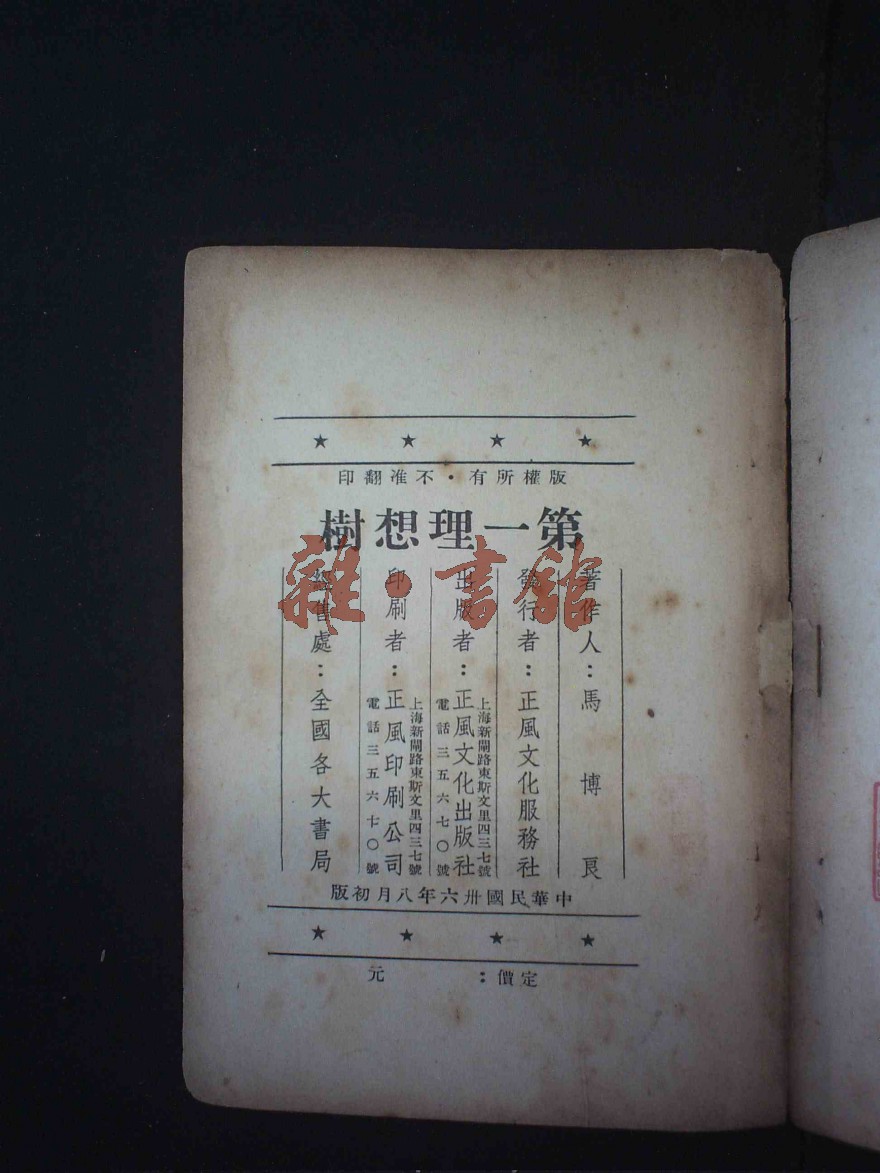 版權所有·不准翻印
第一理想樹
著作人：馬博良
發行者：正風文化服務社
出版者：正風文化出版社
上海新閘路東斯文里四三七號
電話三五六七〇號
印刷者：正風印刷公司
上海新閘路東斯文里四三七號
電話三五六七〇號
經售處：全國各大書局
中華民國卅六年八月初版
定價： 元
雜·書館